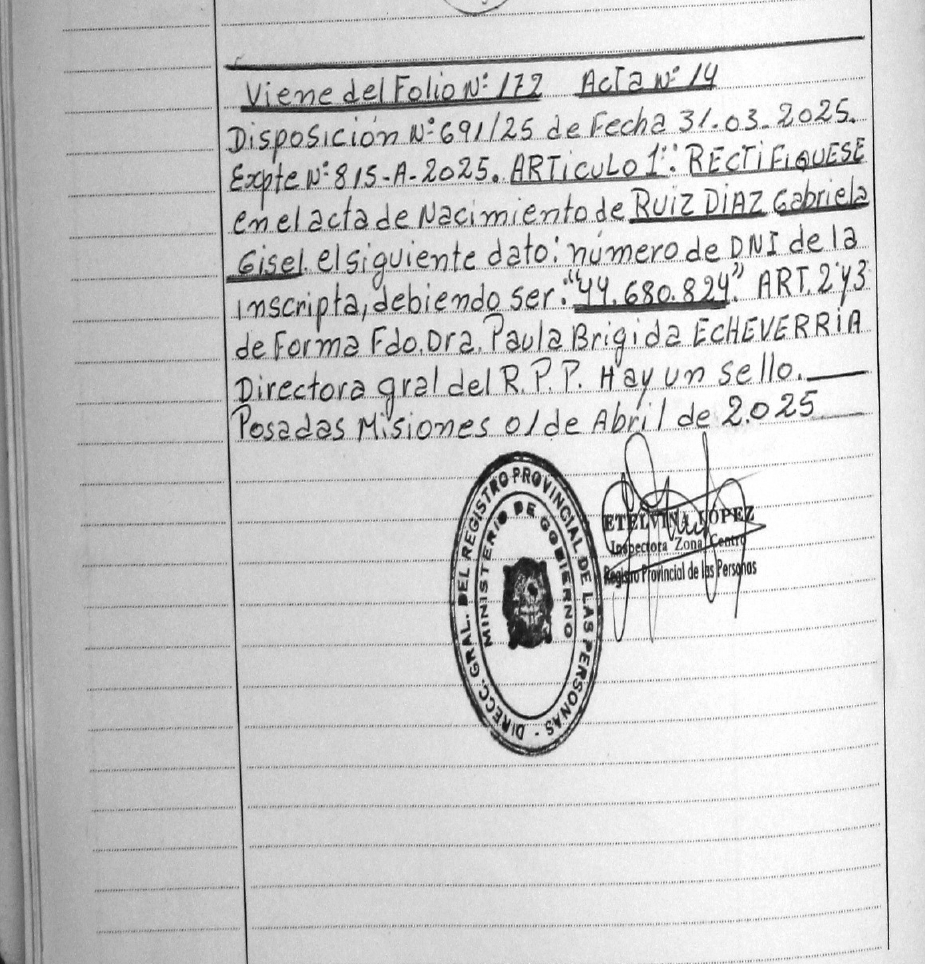 Viene del Folio Nº: 172 Acta Nº 14
Disposición Nº: 691/25 de Fecha 31.03.2025.
Expte Nº: 815-A-2025. ARTiCULO 1º: RECTiFiQUESE
en el acta de Nacimiento de RUiZ DiAZ Gabriela
Gisel. el siguiente dato: número de DNI de la
inscripta, debiendo ser: "44.680.824". ART. 2 y 3
de Forma Fdo. Dra. Paula Brigida ECHEVERRiA
Directora gral del R.P.P. Hay un sello.
Posadas Misiones 01 de Abril de 2.025
DIRECC. GRAL. DEL REGISTRO PROVINCIAL DE LAS PERSONAS -
MINISTERIO DE GOBIERNO
ETELVINA LOPEZ
Inspectora Zona Centro
Registro Provincial de las Personas